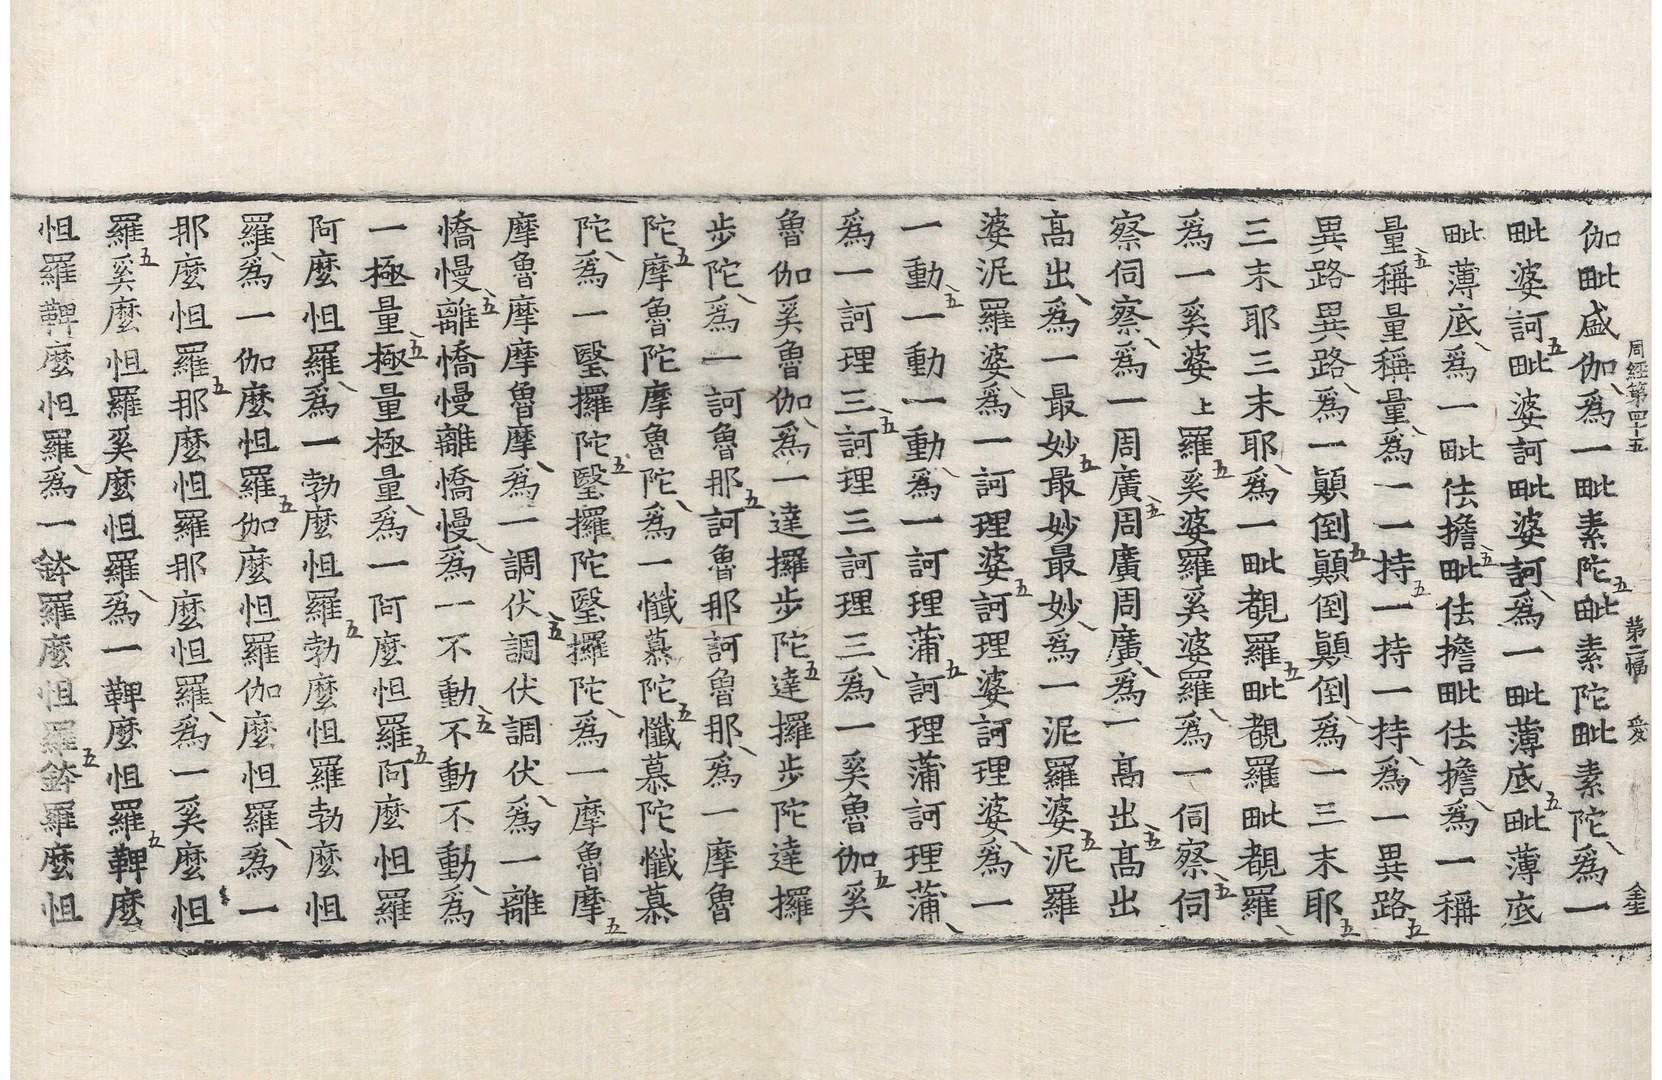 周經第四十五　第二幅　愛
伽毗盛伽爲一毗素陀毗素陀毗素陀爲一
毗婆訶毗婆訶毗婆訶爲一毗薄底毗薄底
毗薄底爲一毗佉擔毗佉擔毗佉擔爲一稱
量稱量稱量爲一一持一持一持爲一異路
異路異路爲一顛倒顛倒顛倒爲一三末耶
三末耶三末耶爲一毗覩羅毗覩羅毗覩羅
爲一奚婆上羅奚婆羅奚婆羅爲一伺察伺
察伺察爲一周廣周廣周廣爲一高出高出
高出爲一最妙最妙最妙爲一泥羅婆泥羅
婆泥羅婆爲一訶理婆訶理婆訶理婆爲一
一動一動一動爲一訶理蒲訶理蒲訶理蒲
爲一訶理三訶理三訶理三爲一奚魯伽奚
魯伽奚魯伽爲一達攞步陀達攞步陀達攞
步陀爲一訶魯那訶魯那訶魯那爲一摩魯
陀摩魯陀摩魯陀爲一懺慕陀懺慕陀懺慕
陀爲一瑿攞陀瑿攞陀瑿攞陀爲一摩魯摩
摩魯摩摩魯摩爲一調伏調伏調伏爲一離
憍慢離憍慢離憍慢爲一不動不動不動爲
一極量極量極量爲一阿麼怛羅阿麼怛羅
阿麼怛羅爲一勃麼怛羅勃麼怛羅勃麼怛
羅爲一伽麼怛羅伽麼怛羅伽麼怛羅爲一
那麼怛羅那麼怛羅那麼怛羅爲一奚麼怛
羅奚麼怛羅奚麼怛羅爲一鞞麼怛羅鞞麼
怛羅鞞麼怛羅爲一鉢羅麼怛羅鉢羅麼怛